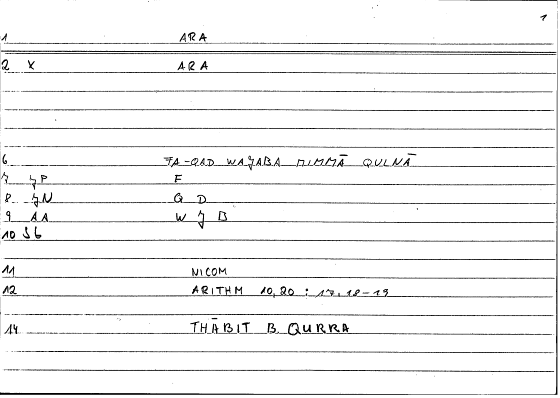 1
1 ARA
2 X ARA
6 FA-QAD WAJABA MIMMĀ QULNĀ
7 JP F
8 JN Q D
9 AA W J B
10 S6
11 NICOM
12 ARITHM 10,20 : 17,18-19
14 THĀBIT B. QURRA